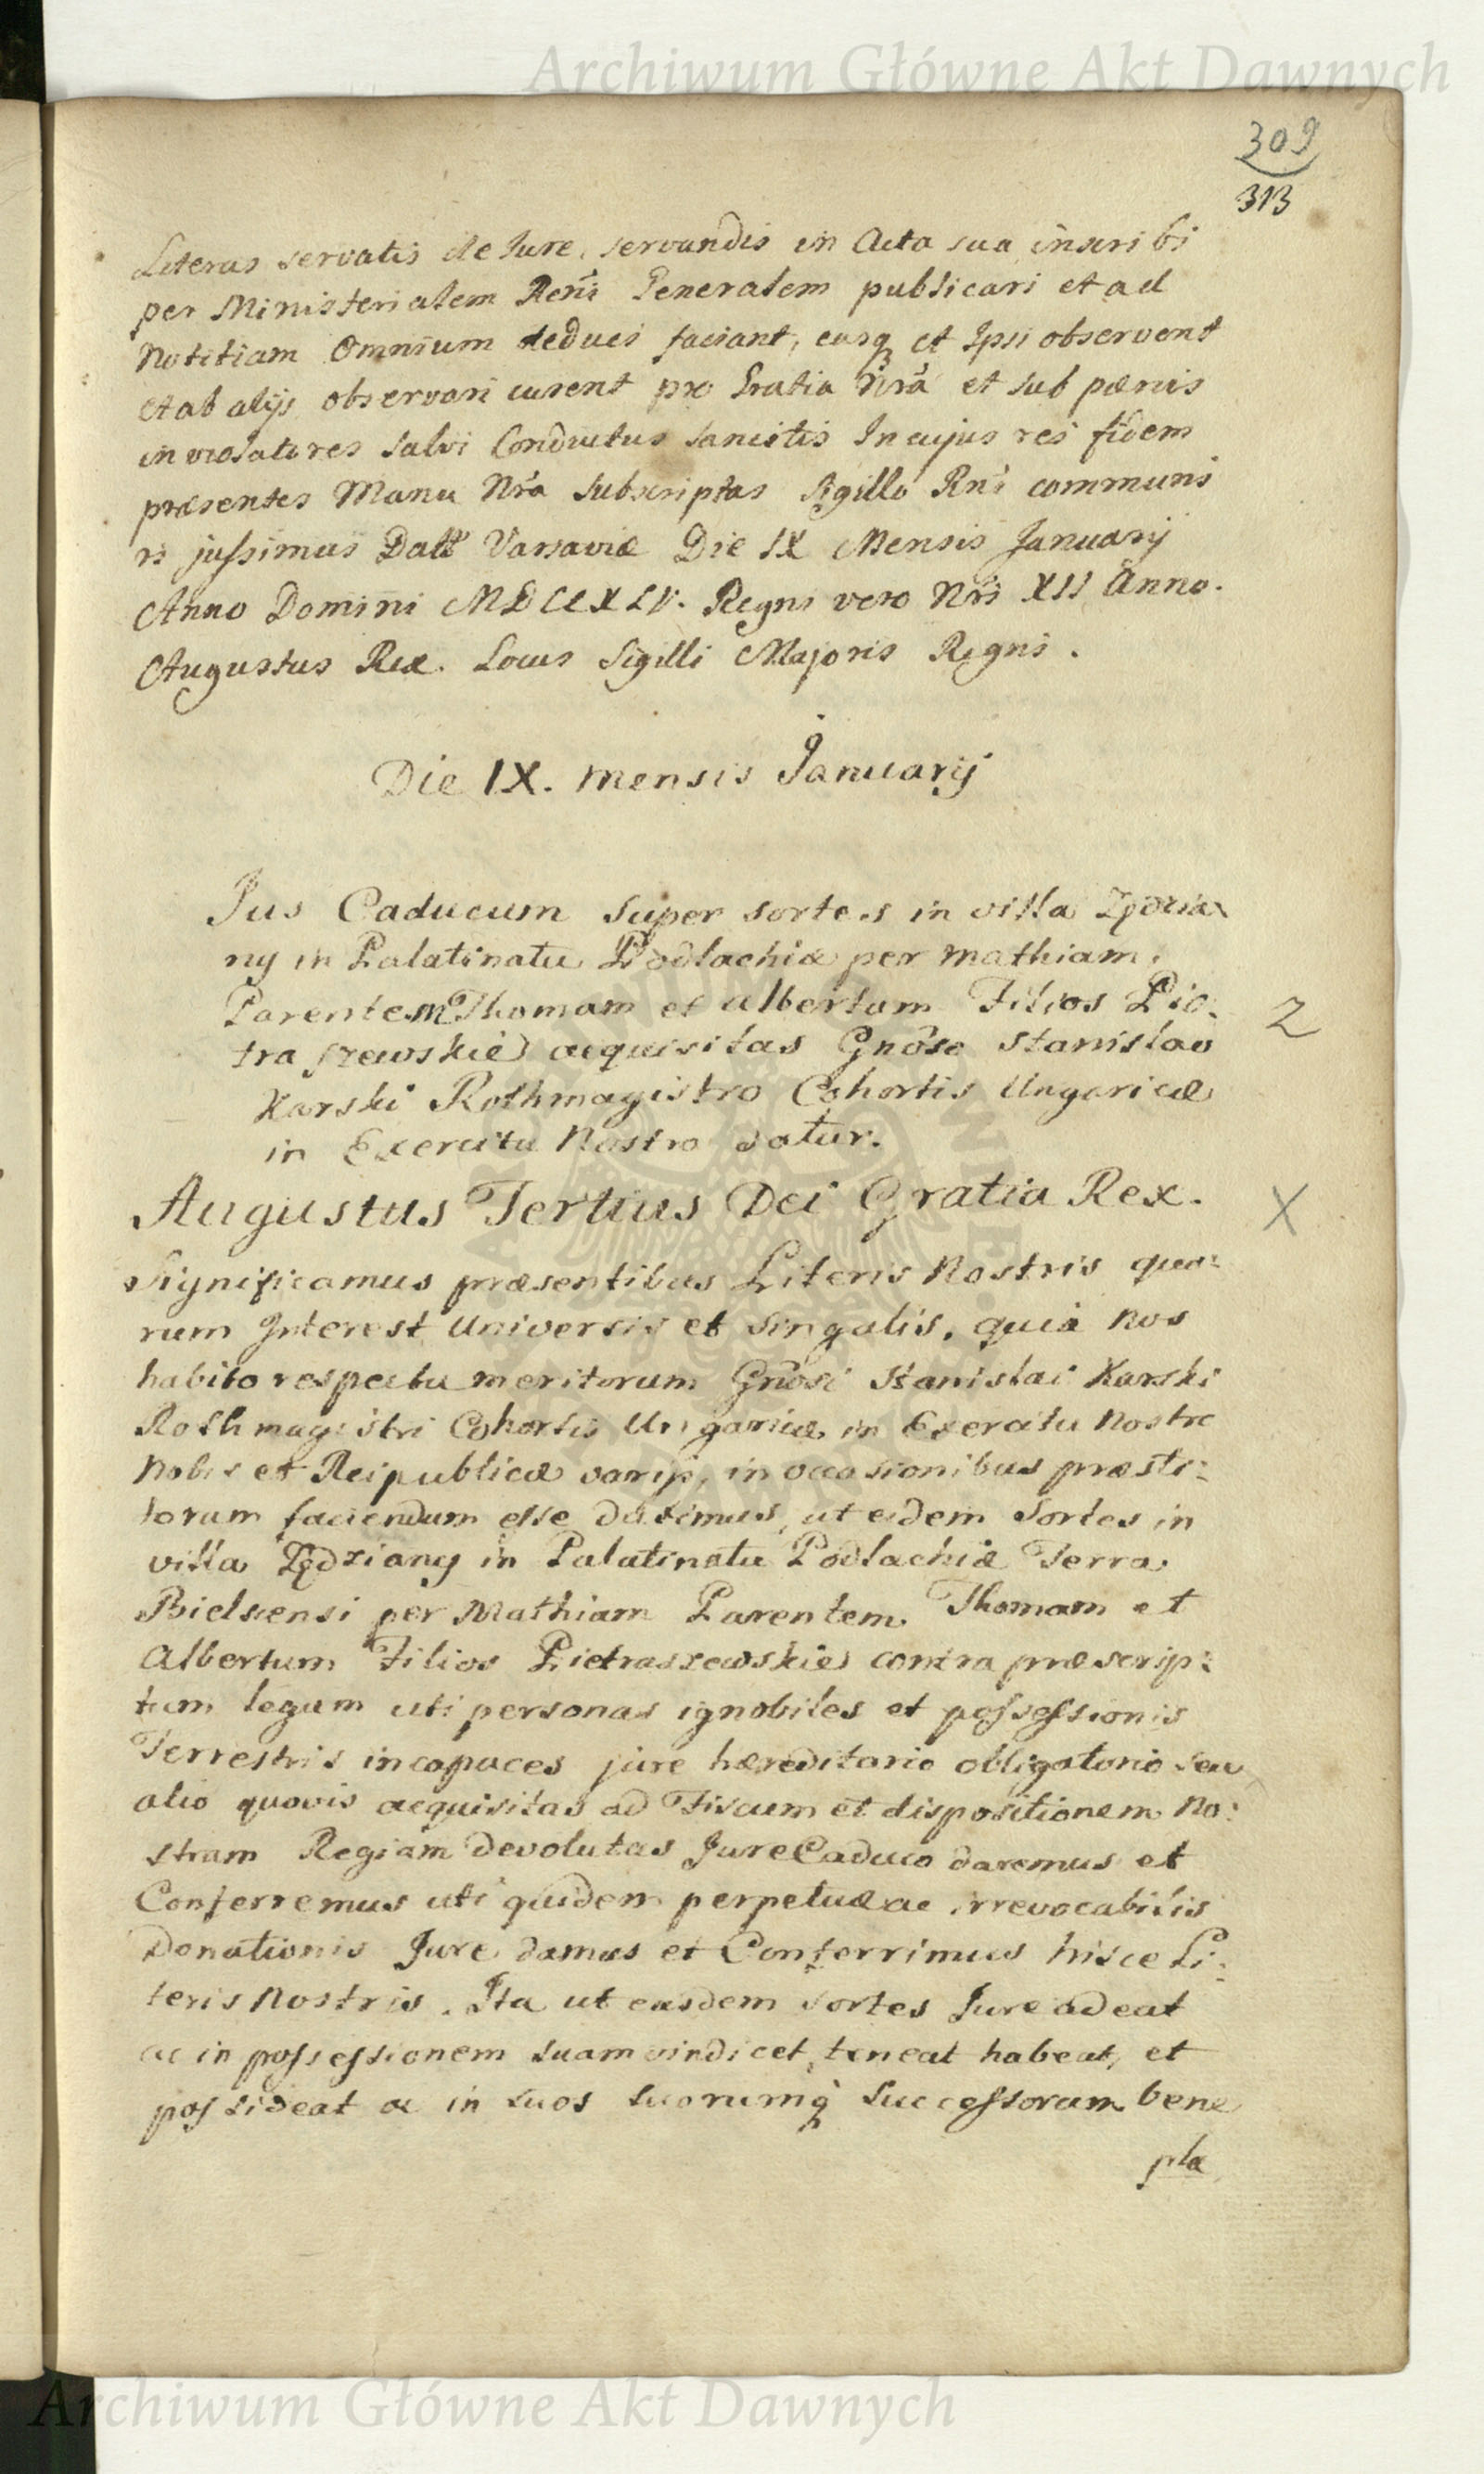 Archiwum Główne Akt Dawnych
309
313
Literas servatis de Jure, servandis in Acta sua inscribi
per Ministerialem Regni Generalem publicari et ad
Notitiam Omnium deduci faciant, easq et Ipsi observent
et ab alijs observari curent pro Gratia Nrâ et sub pænis
in violatores salvi Conductus sancitis In cujus rei fidem
præsentes Manu Nrâ subscriptas Sigillo Rni communi
ri jussimus Datt Varsaviæ Die IX Mensis Januarij
Anno Domini MDCCXLV. Regni vero Nri XII Anno.
Augustus Rex. Locus Sigilli Majoris Regni.
Die IX. mensis Januarij
Jus Caducum super sortes in villa Zędzia
ny in Palatinatu Podlachiæ per Mathiam
Parentem Thomam et Albertum Filios Pio:
traszewskie acquisitas Gnôso Stanislao
Karski Rothmagistro Cohortis Ungaricæ
in Exercitu Nostro datur.
2
Augustus Tertius Dei Gratia Rex.
X
Significamus præsentibus Literis Nostris quo:
rum Interest Universis et singulis, quia nos
habito respectu meritorum Gnôsi Stanislai Karski
Rothmagistri Cohortis Ungaricæ in Exercitu Nostro
Nobis et Reipublicæ varijs in occasionibus præsti:
torum faciendum esse duximus, ut eidem Sortes in
villa Zędziany in Palatinatu Podlachiæ Terra
Bielscensi per Mathiam Parentem Thomam et
Albertum Filios Pietraszewskie contra præscrip:
tum legum uti personas ignobiles et possessionis
Terrestris incapaces jure hæreditario obligatorio seu
alio quovis acquisitas ad Fiscum et dispositionem No:
stram Regiam devolutas Jure Caduco daremus et
Conferremus uti quidem perpetuæ ac irrevocabilis
Donationis Jure damus et Conferrimus hisce Li:
teris Nostris. Ita ut easdem sortes Jure adeat
ac in possessionem suam vindicet, teneat habeat, et
possideat ac in suos suorumq successorum bene
pla
Archiwum Główne Akt Dawnych